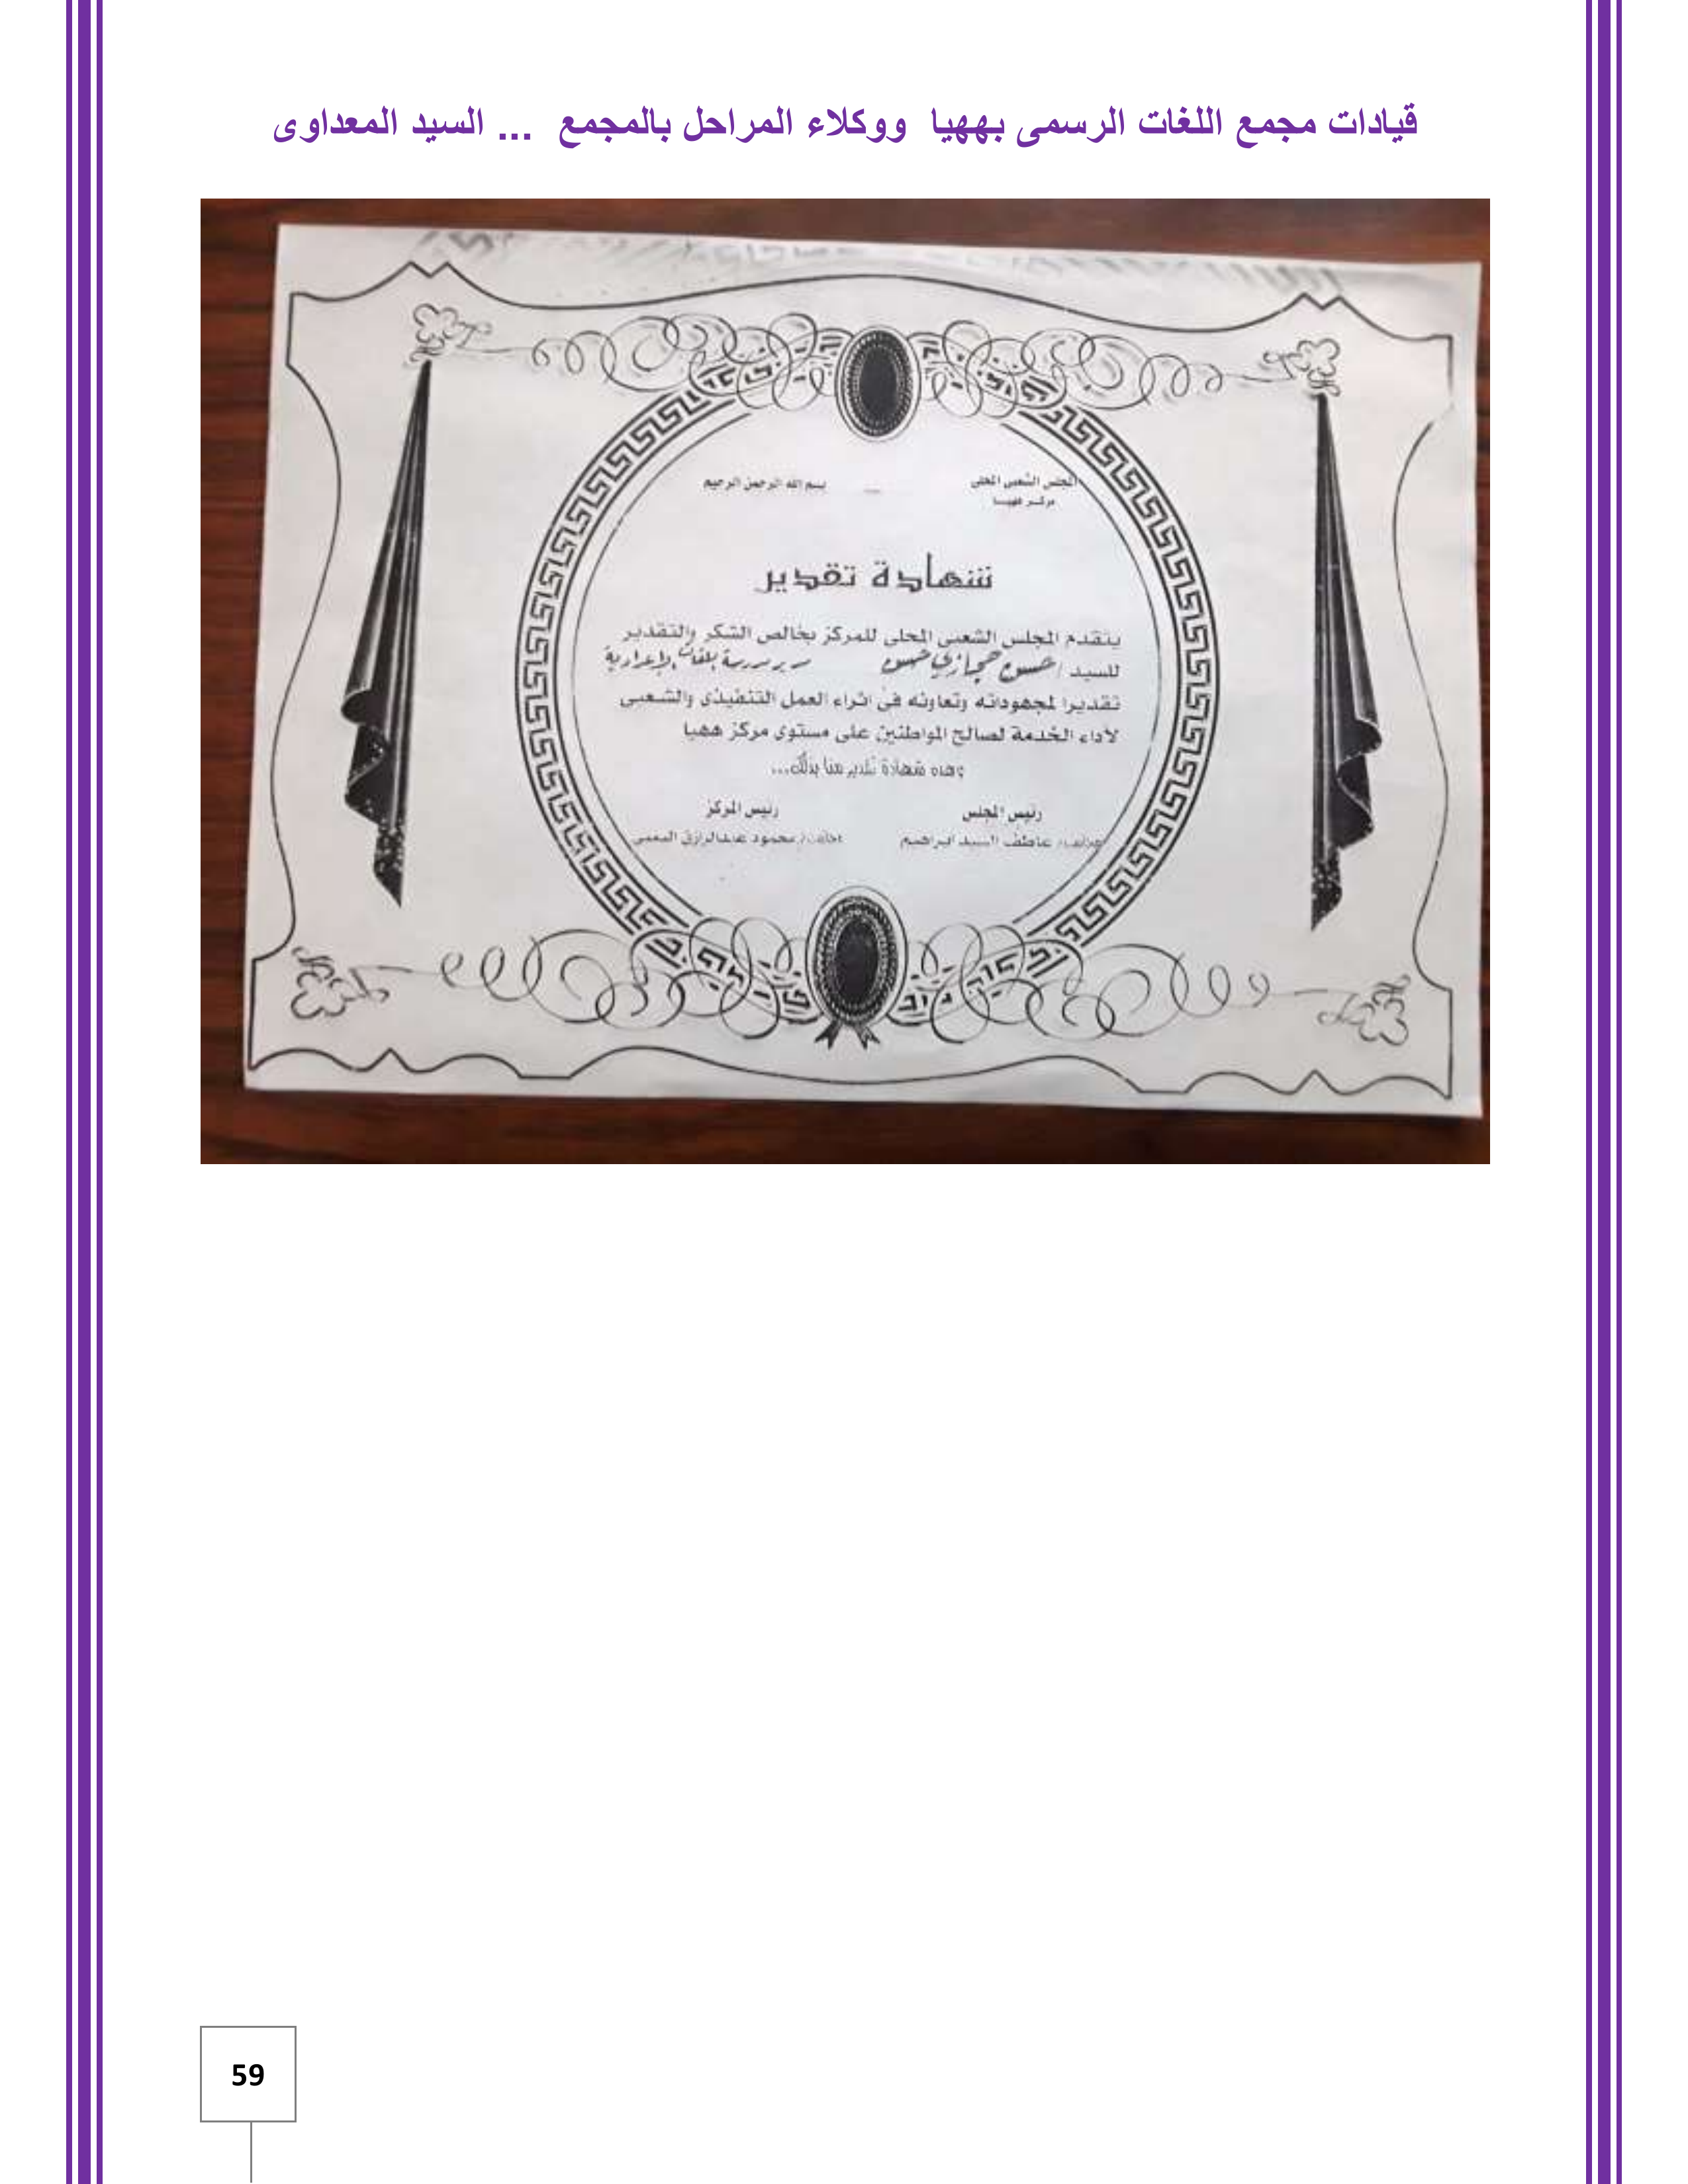 قيادات مجمع اللغات الرسمى بههيا ووكلاء المراحل بالمجمع ... السيد المعداوى
المجلس الشعبى المحلى
مركز ههيا
بسم الله الرحمن الرحيم
شهادة تقدير
يتقدم المجلس الشعبى المحلى للمركز بخالص الشكر والتقدير
للسيد / حسن حجازي حسن مدير مدرسة اللغات الإعدادية
تقديرا لمجهوداته وتعاونه فى اثراء العمل التنفيذى والشعبى
لأداء الخدمة لصالح المواطنين على مستوى مركز ههيا
وهذه شهادة تقدير منا بذلك...
رئيس المجلس
عاطف السيد ابراهيم
رئيس المركز
محمود عبدالرازق
59